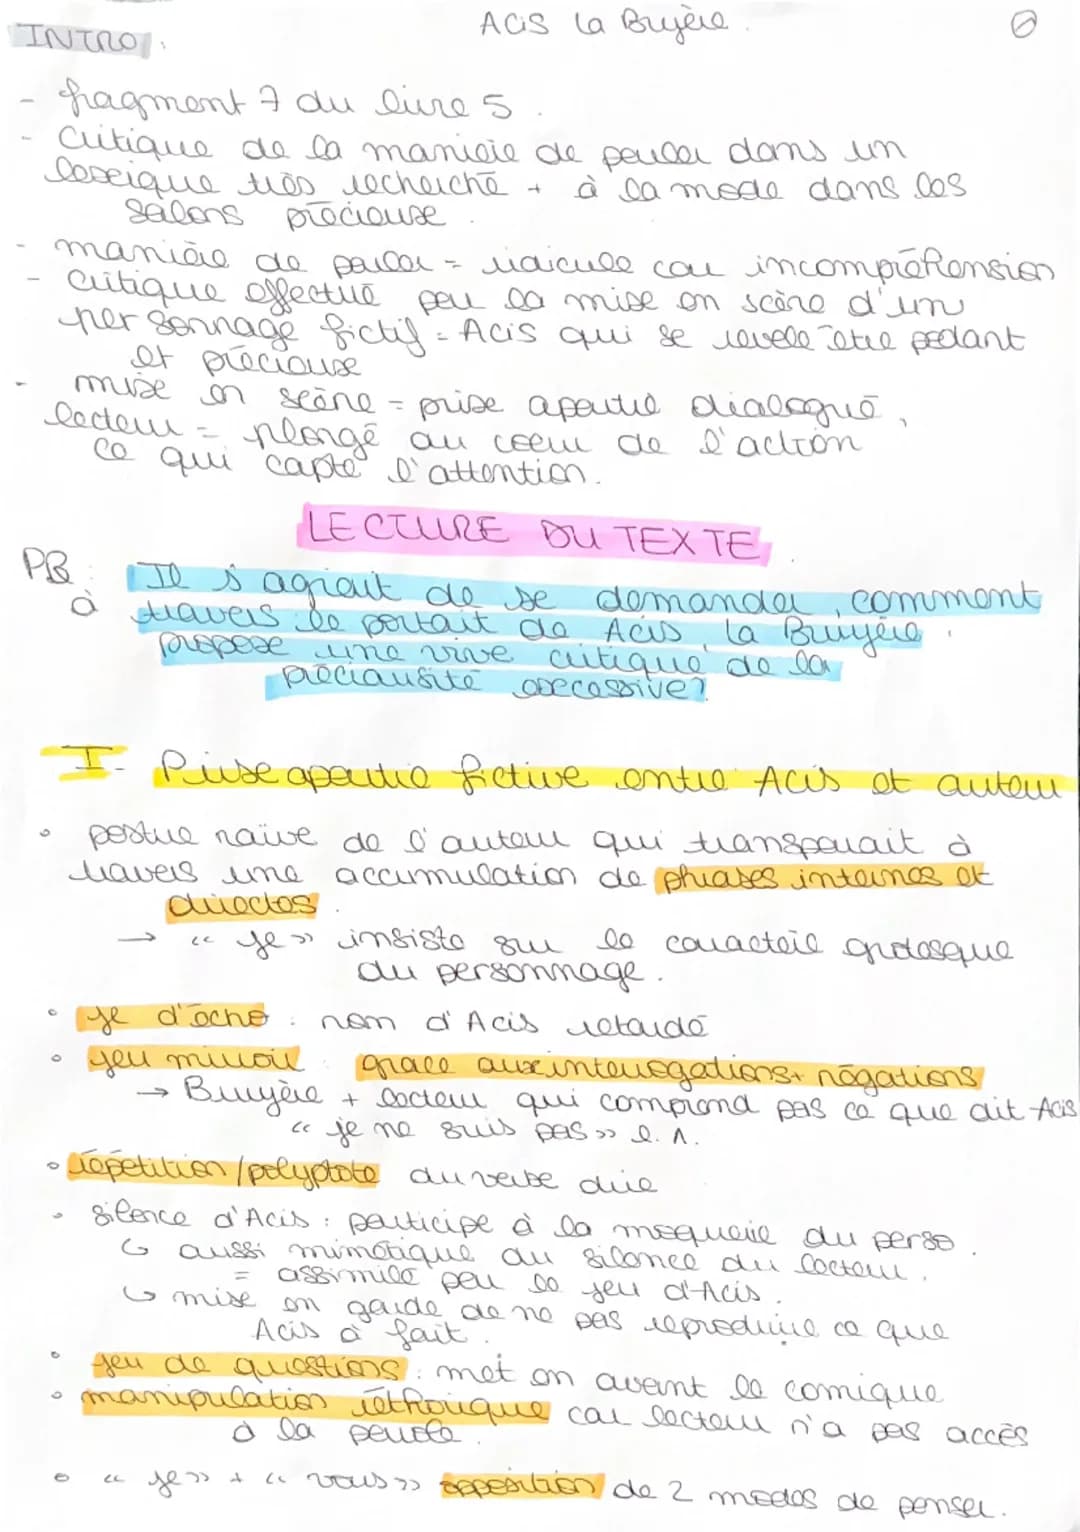 Acis La Bruyère.
INTRO :
- fragment 7 du livre 5.
- Critique de la manière de parler dans un
lexique très recherché + à la mode dans les
salons précieuse.
- manière de parler = ridicule car incompréhension
- critique effectué par la mise en scène d'un
personnage fictif = Acis qui se révèle être pédant
et précieuse
- mise en scène = prise apartie dialogué,
lecteur = plongé au coeur de l'action
ce qui capte l'attention.
LECTURE DU TEXTE
PB : Il s'agirait de se demander, comment
à travers le portait de Acis, La Bruyère,
propose une vive critique de la
préciausité excessive?
I- Prise apartie fictive entre Acis et auteur
• postue naïve de l'auteur qui transparait à
travers une accumulation de phrases internes et
directes.
→ "je" insiste sur le caractère grotesque
du personnage.
• je d'écho : nom d'Acis retardé
• jeu miroir : grace aux interrogations + négations
→ Bruyère + lecteur qui comprend pas ce que dit Acis
"je ne suis pas" l. 1.
• répétition/polyptote du verbe dire
• silence d'Acis : participe à la moquerie du perso.
↳ aussi mimétique au silence du lecteur.
= assimilé par le jeu d'Acis.
↳ mise en garde de ne pas reproduire ce que
Acis à fait.
• jeu de questions : met en avant le comique
• manipulation réthorique car lecteur n'a pas accès
à la parole.
• "je" + "vous" opposition de 2 modes de penser.